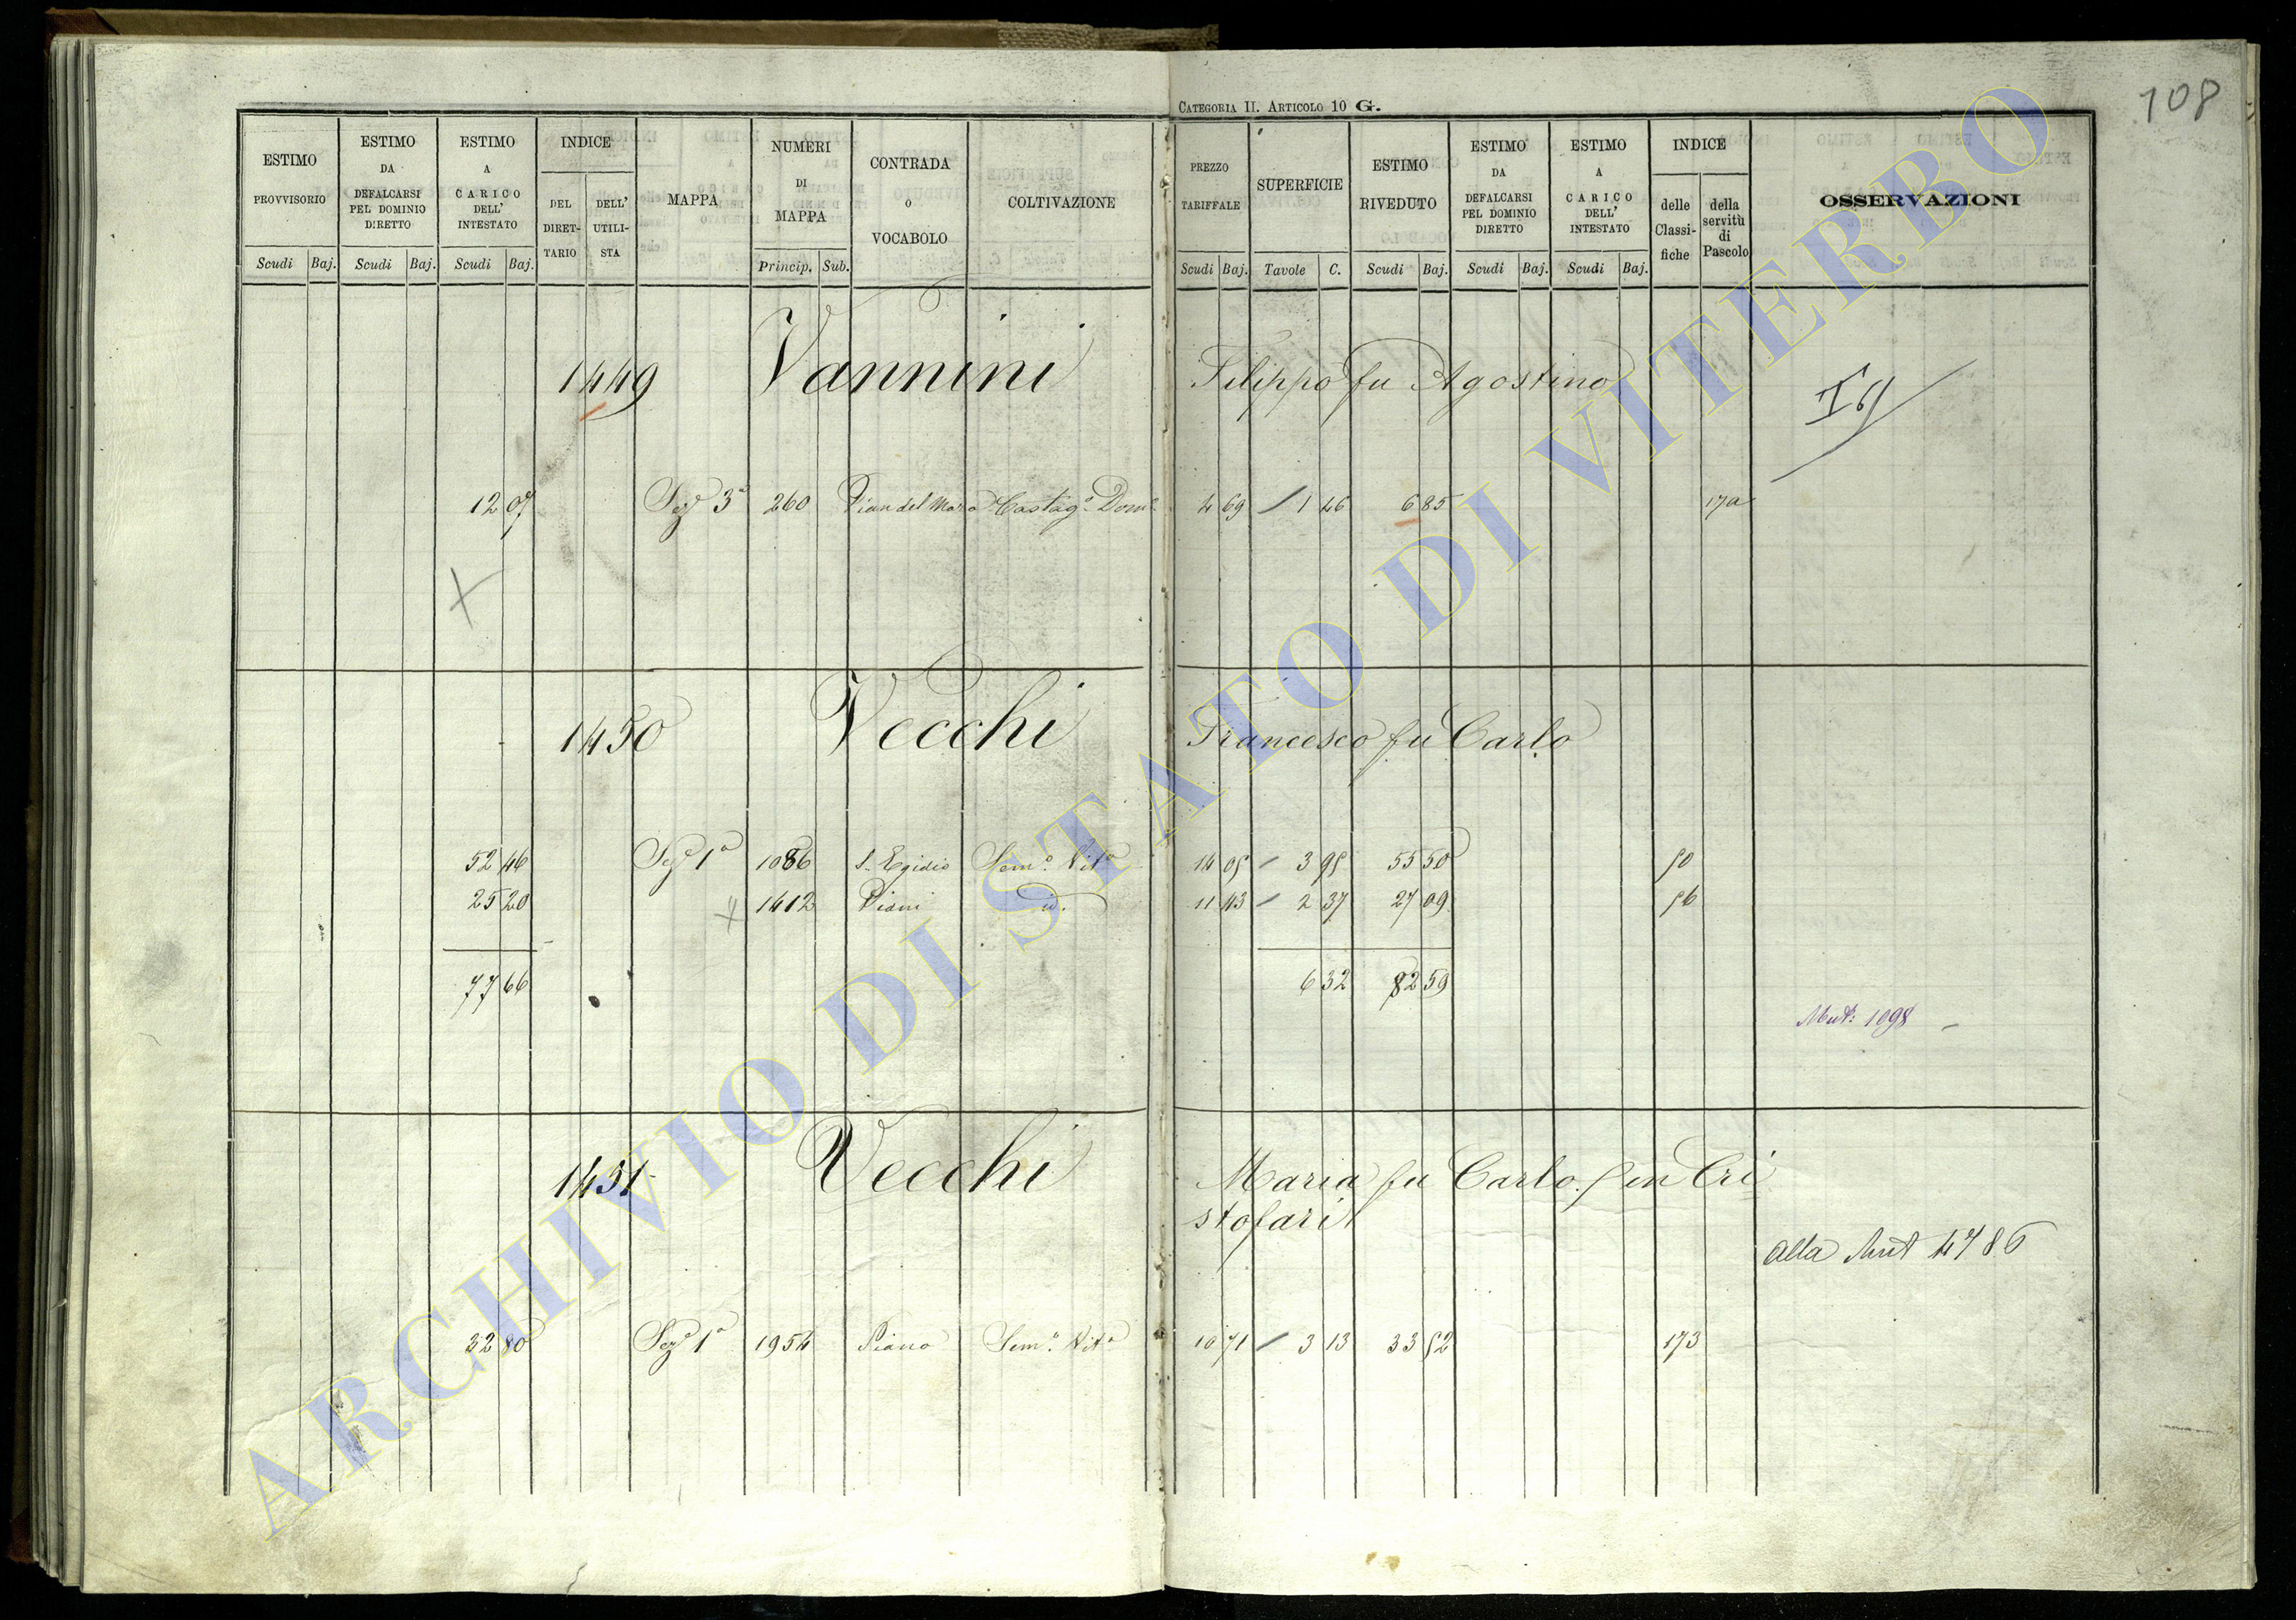 108
CATEGORIA II. ARTICOLO 10 G.
ESTIMO PROVVISORIO
ESTIMO DA DEFALCARSI PEL DOMINIO DIRETTO
ESTIMO A CARICO DELL' INTESTATO
INDICE
DEL DIRETTARIO
DELL' UTILISTA
MAPPA
NUMERI DI MAPPA
CONTRADA O VOCABOLO
COLTIVAZIONE
PREZZO TARIFFALE
SUPERFICIE
ESTIMO RIVEDUTO
ESTIMO DA DEFALCARSI PEL DOMINIO DIRETTO
ESTIMO A CARICO DELL' INTESTATO
INDICE
delle Classifiche
della servitù di Pascolo
OSSERVAZIONI
Scudi Baj. Scudi Baj. Scudi Baj. Princip. Sub. Scudi Baj. Tavole C. Scudi Baj. Scudi Baj. Scudi Baj.
1449 Vannini Filippo fu Agostino
12 07 Sez.e 3a 260 Pian del Castag.o Dom.e 4 69 1 46 6 85 17a
1450 Vecchi Francesco fu Carlo
52 46 Sez.e 1a 1086 S. Egidio Sem.o Vit.o 14 05 3 95 55 50 50
25 20 1412 Piani id. 11 43 2 37 27 09 56
77 66 6 32 82 59
Mut: 1098
1451 Vecchi Maria fu Carlo in Cri
stofari
Alla Mut 4786
32 80 Sez.e 1a 1954 Piano Sem.o Vit.o 10 71 3 13 33 52 173
ARCHIVIO DI STATO DI VITERBO